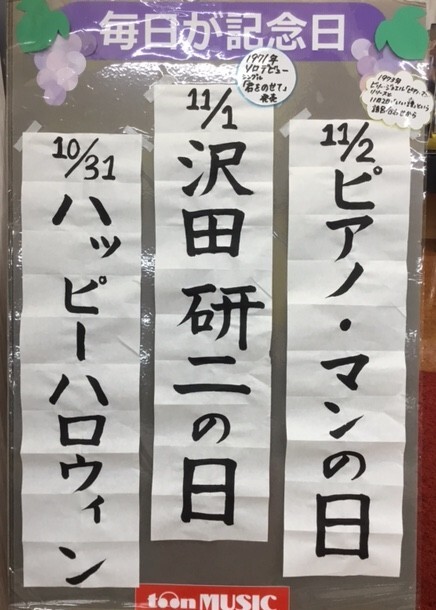 毎日が記念日
10/31
ハッピーハロウィン
1971年
ソロデビュー
シングル
「君をのせて」
発売
11/1
沢田研二の日
1973年
ビリー・ジョエル「ピアノ・マン」
リリース
11/2
ピアノ・マンの日
toon MUSIC